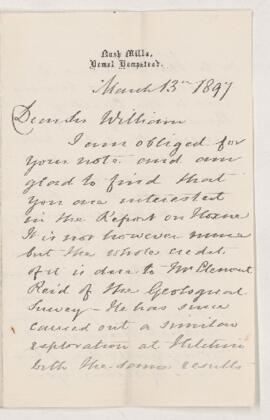 Nash Mills,
Hemel Hempstead.
March 13th 1897
Dear Sir William
I am obliged for
your note and am
glad to find that
you are interested
in the Report on Hoxne
It is not however mine
but the whole credit
of it is due to Mr Clement
Reid of the Geological
Survey - He has since
carried out a similar
exploration at Hitchin
with the same results